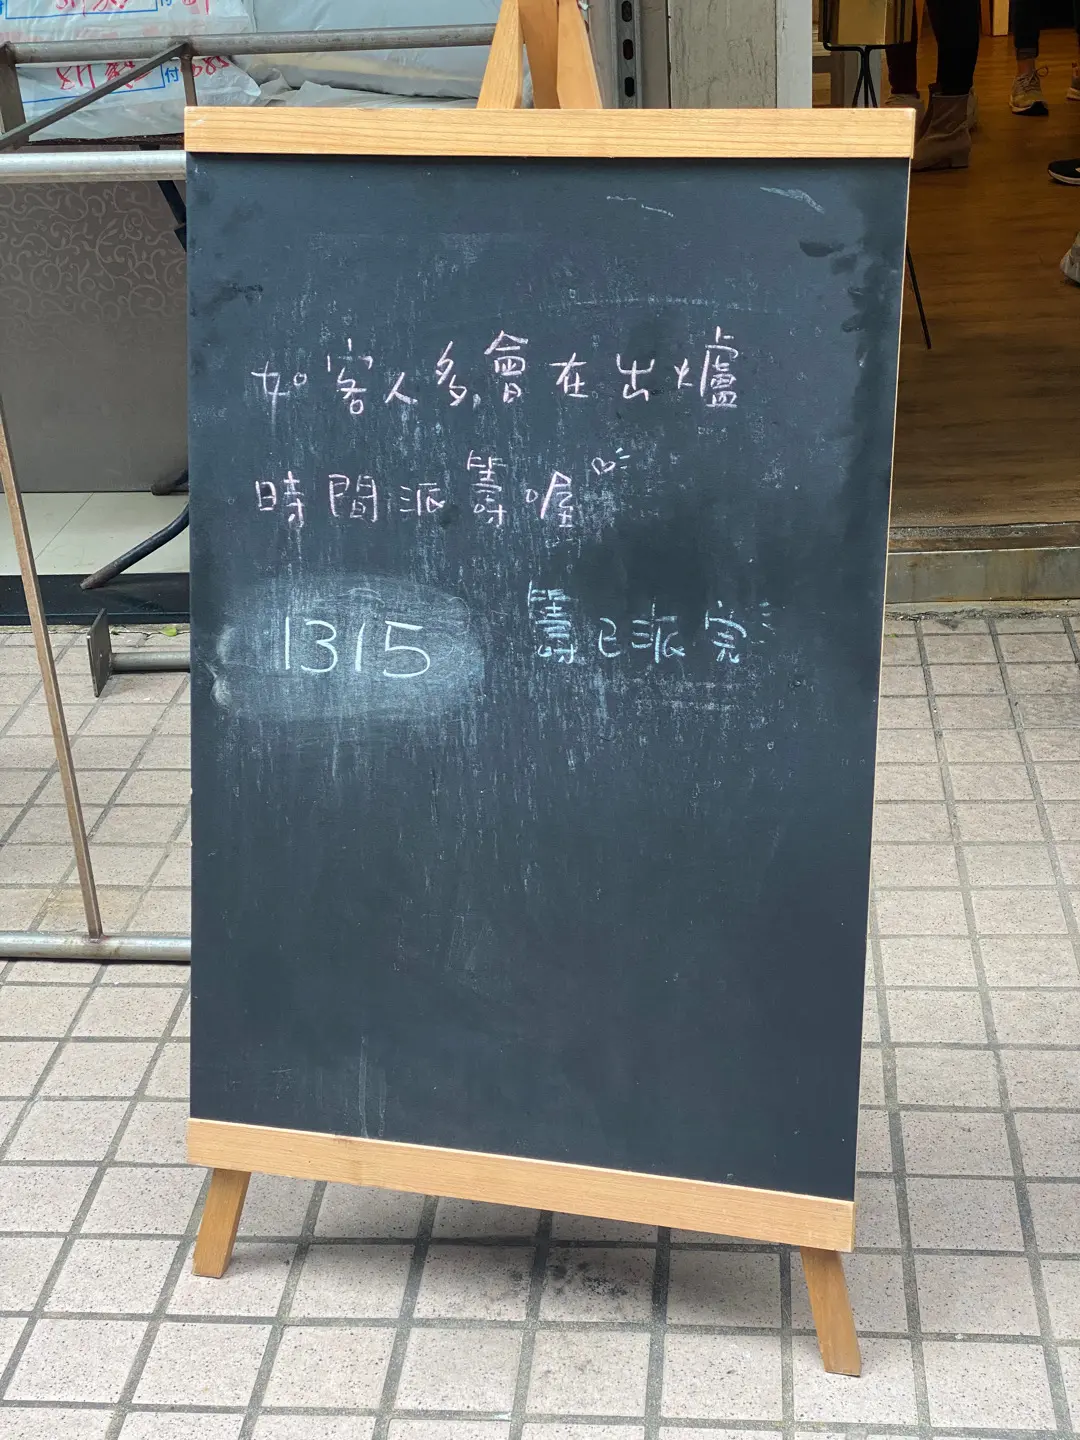 如客人多,會在出爐
時間派籌喔
1315 籌已派完